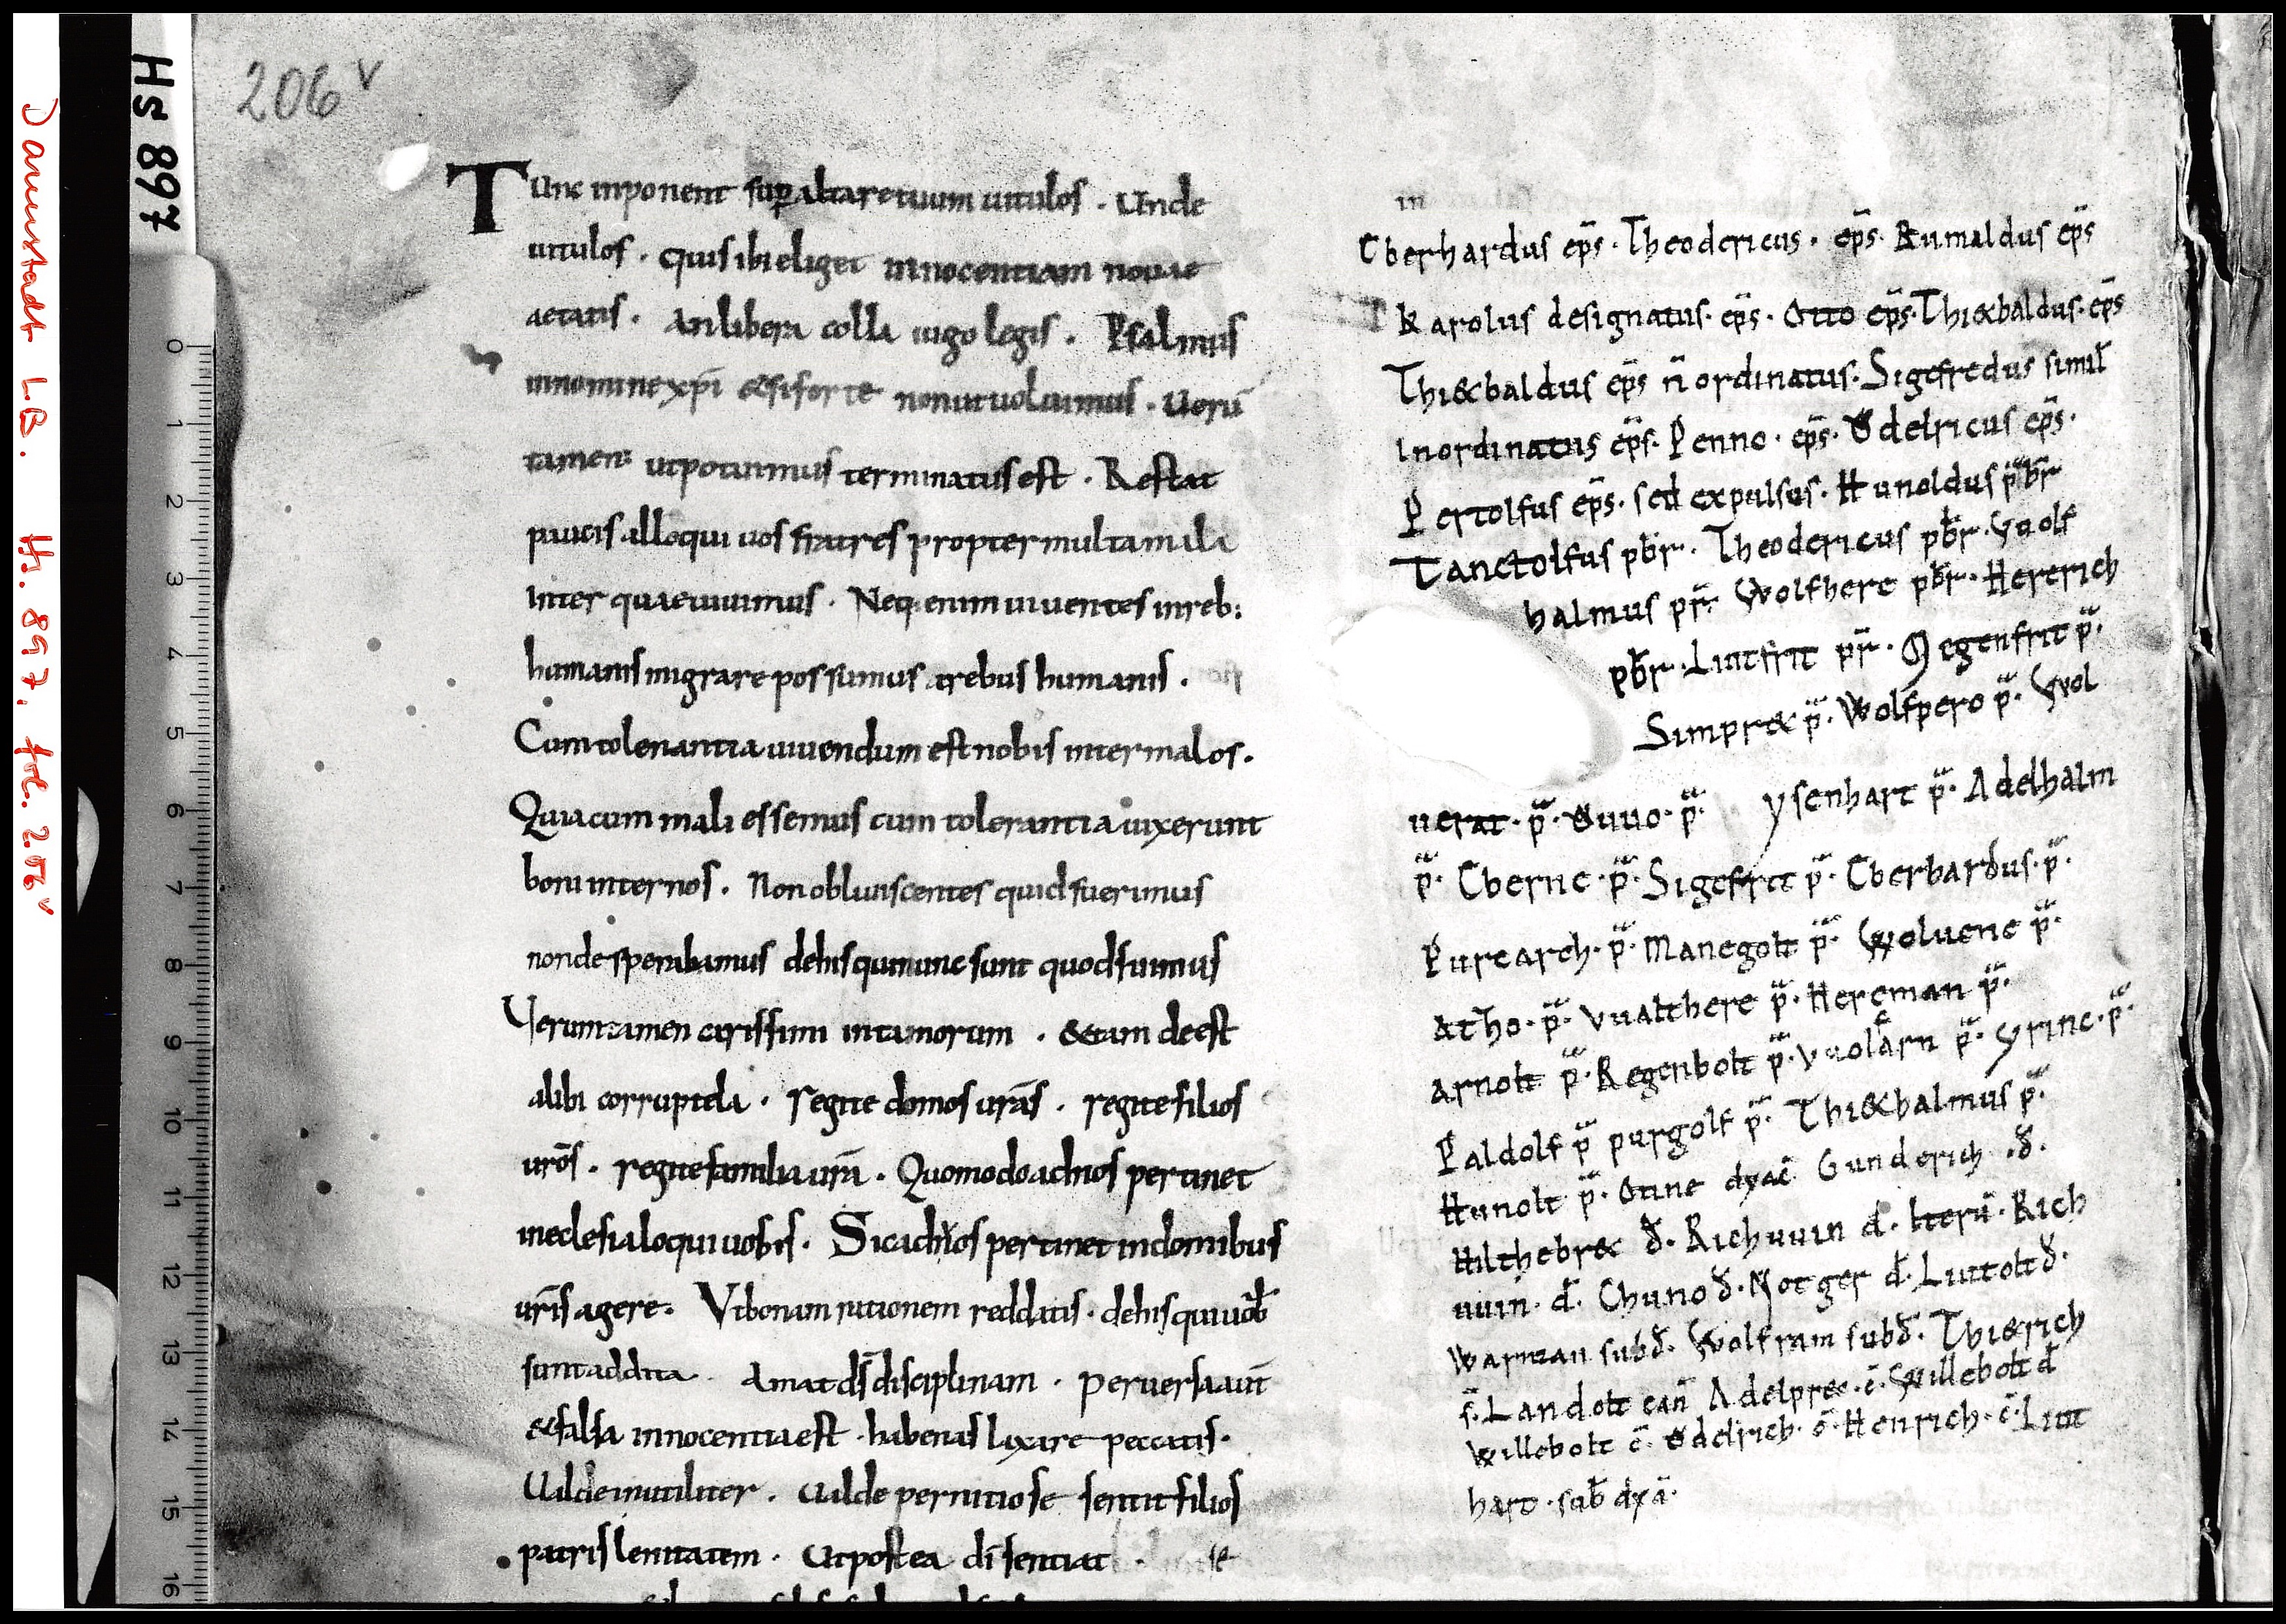 Darmstadt LB. Hs. 897, fol. 206v
Hs 897
206 v
0 1 2 3 4 5 6 7 8 9 10 11 12 13 14 15 16
Tunc inponent sup altare tuum uitulos . Unde
uitulos . quis ibi eliget innocentiam nouae
aetatis . an libera colla iugo legis . Psalmus
in nomine xp̄i & si forte non ut uoluimus . Uerū
tamen ut potuimus terminatus est . Restat
paucis alloqui uos fratres propter multa mala
inter quae uiuimus . Neq; enim uiuentes in reb;
humanis migrare possumus a rebus humanis .
Cum tolerantia uiuendum est nobis inter malos .
Quia cum mali essemus cum tolerantia uixerunt
boni inter nos . Non obliuiscentes quid fuerimus
non desperabimus de his qui nunc sunt quod fuimus
Uerum tamen carissimi in tam morum . & tam de est
alibi corruptela . regite domos urās . regite filios
urōs . regite familia urā . Quomodo ad nos pertinet
in eclesia loqui uobis . Sic ad uos pertinet in domibus
urīs agere . Ut bonam rationem reddatis . de his qui uob̄
sunt addita . Amat dš disciplinam . peruersa aūt
& falsa innocentia est . habenas laxare peccatis .
Ualde inutiliter . ualde pernitiose sentit filios
patris lenitatem . Ut postea dī sentiat
in
Eberhardus ep̄s . Theodericus . ep̄s . Rumaldus ep̄s
Karolus designatus . ep̄s . Otto ep̄s . Thi&baldus . ep̄s
Thi&baldus ep̄s n̄ ordinatus . Sigefredus simil̄
Inordinatus ep̄s . Penno . ep̄s . Ŏdelricus ep̄s .
Pertolfus ep̄s . sed expulsus . Hunoldus p̄br̄
Tanctolfus pb̄r . Theodericus pb̄r . Guolf
halmus pr̄ . Wolfhere pb̄r . Hererich
pb̄r . Liutfrit pr̄ . Megenfrit p̄ .
Simpr& p̄ . Wolfpero p̄ . Wol
uerat . p̄ . Ŏuuo . p̄ . ysenhart p̄ . Adelhalm
p̄ . Eberne . p̄ . Sigefrit p̄ . Eberhardus . p̄ .
Purcarch . p̄ . Manegolt p̄ . Woluene p̄ .
Atho . p̄ . Vualthere p̄ . Hereman p̄ .
Arnolt p̄ . Regenbolt p̄ . Vuolarn p̄ . yrinc . p̄ .
Paldolf p̄ purgolf p̄ . Thi&halmus p̄ .
Hunolt p̄ . Onne dyac̄ Gunderich . đ .
Hilthebr& đ . Richuuin đ . Iterū . Rich
uuin . đ . Chuno đ . Notger đ . Liutolt đ .
Warman subđ . Wolfram subđ . Thi&rich
s̄ . Landolt can̄ Adelpre& . c̄ . Willebolt đ
Willebolt c̄ . Ŏdelrich . c̄ . Henrich . c̄ . Liut
hart . sub̄ dyā .